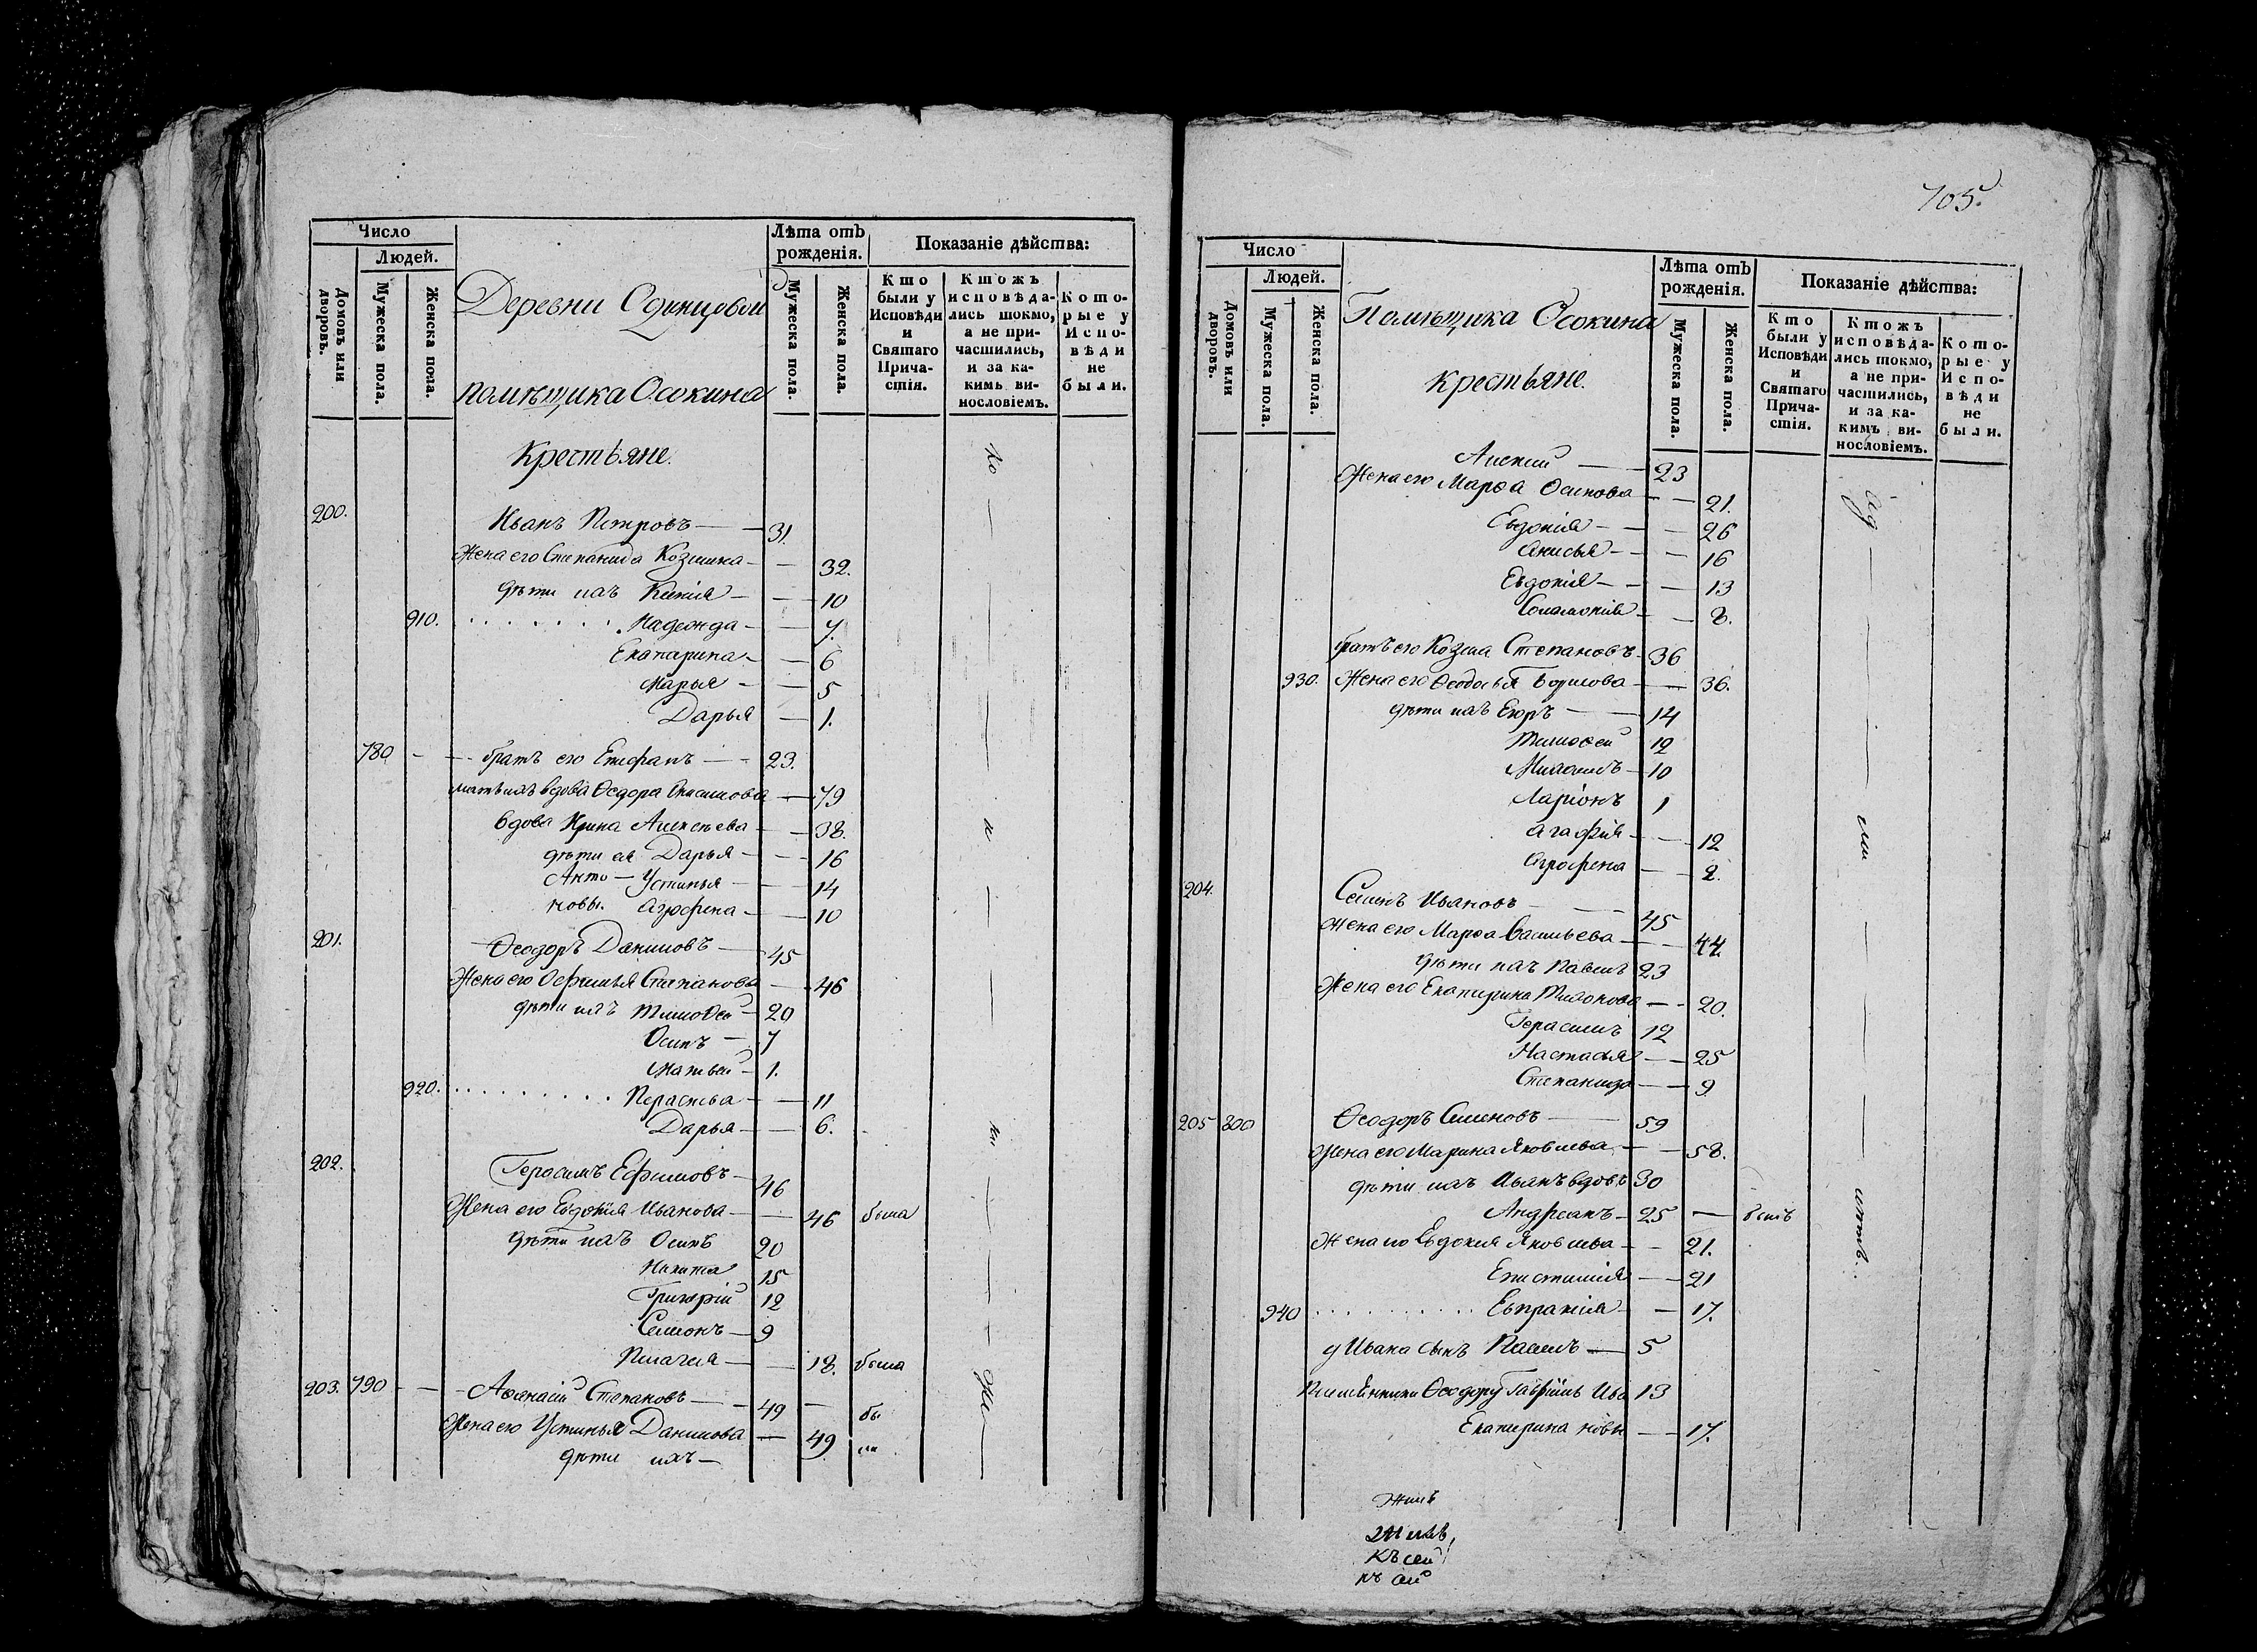 Число
Людей.
Домовъ или дворовъ.
Мужеска пола.
Женска пола.
Лѣта отъ рожденія.
Мужеска пола.
Женска пола.
Показаніе дѣйства:
Кто были у Исповѣди и Святаго Причастія.
Ктожъ исповѣдались токмо, а не причастились, и за какимъ винословіемъ.
Которые у Исповѣди не были.
Деревни Одинцовой
помѣщика Осокина
Крестьяне.
200. Иванъ Петровъ — 31.
Жена его Степанида Козмина — 32.
дѣти ихъ Ксенія — 10
910. Надежда — 7.
Екатерина — 6
Марья — 5
Дарья — 1.
780 братъ его Епифанъ — 23.
мать ихъ вдова Ѳедора Анисимова — 79
вдова Ирина Алексѣева — 38.
дѣти ея Дарья — 16
Анто — Устинья — 14
новы. Агрофена — 10
201. Ѳеодоръ Даниловъ — 45
Жена его Офимья Степанова — 46
дѣти ихъ Тимоѳей — 20
Осипъ — 7
Матвей — 1.
920. Парасковья — 11
Дарья — 6.
202. Герасимъ Ефимовъ — 46
Жена его Евдокія Иванова — 46 была
дѣти ихъ Осипъ 20
Никита 15
Григорій 12
Симонъ — 9
Пелагея — 18. была
203. 790 — Аѳанасій Степановъ — 49 — бы
Жена его Устинья Данилова — 49 ли
дѣти ихъ —
705.
Число
Людей.
Домовъ или дворовъ.
Мужеска пола.
Женска пола.
Лѣта отъ рожденія.
Мужеска пола.
Женска пола.
Показаніе дѣйства:
Кто были у Исповѣди и Святаго Причастія.
Ктожъ исповѣдались токмо, а не причастились, и за какимъ винословіемъ.
Которые у Исповѣди не были.
Помѣщика Осокина
крестьяне.
Алексѣй — 23
Жена его Марѳа Осипова — 21.
Евдокія — 26
Анисья — 16
Евдокія — 13
Соломонія — 8.
братъ его Козма Степановъ — 36
930. Жена его Ѳеодосья Борисова — 36.
дѣти ихъ Егоръ — 14
Тимоѳей 12
Михаилъ — 10
Ларіонъ 1
Агафія — 12
Агрофена — 2.
204. Семенъ Ивановъ — 45
Жена его Марѳа Васильева — 44.
дѣти ихъ Павелъ 23
Жена его Екатерина Тихонова — 20.
Герасимъ 12
Настасья — 25
Степанида — 9
205 800 Ѳеодоръ Симоновъ — 59
Жена его Марина Яковлева — 58.
дѣти ихъ Иванъ вдовъ 30
Андреанъ — 25 — былъ
Жена его Евдокия Яковлева — 21.
Епистимія — 21
940 Евпраксія — 17.
у Ивана сынъ Павелъ — 5
Племянники Ѳеодору Гаврiилъ Ива 13
Екатерина новы — 17.